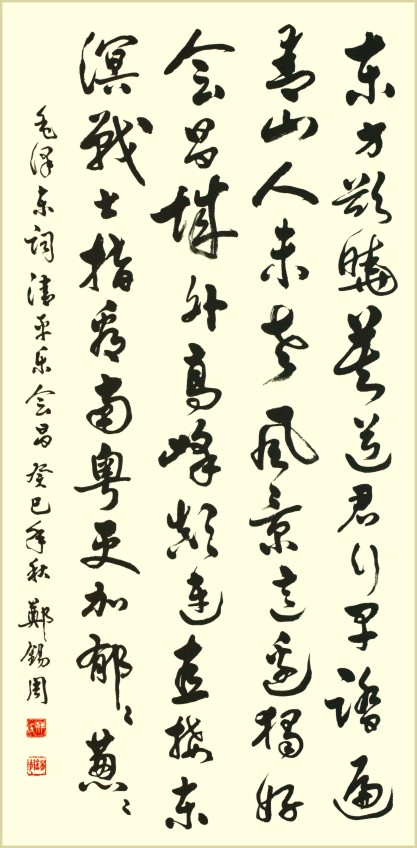 东方欲曉莫道君行早踏遍
青山人未老風景這邊獨好
会昌城外高峰颠連直接东
溟戰士指看南粤更加郁〻葱〻
毛泽东词清平乐会昌癸巳年秋鄭錫周